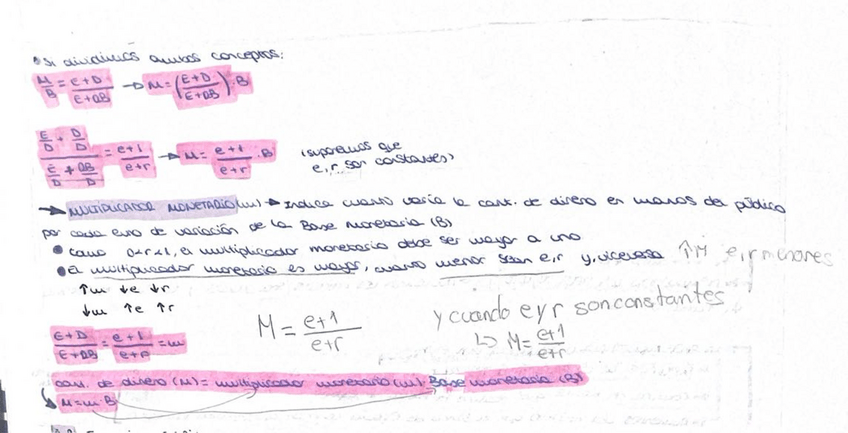 • Si dividimos ambos conceptos:
M/B = (E+D)/(E+DB) → M = ((E+D)/(E+DB)) · B
(E/D + D/D)/(E/D + DB/D) = (e+1)/(e+r) → M = (e+1)/(e+r) · B (suponemos que e, r son constantes)
→ MULTIPLICADOR MONETARIO (m) → Indica cuanto varía la cant. de dinero en manos del público
por cada euro de variación de la Base monetaria (B)
• como 0<r<1, el multiplicador monetario debe ser mayor a uno
• el multiplicador monetario es mayor, cuanto menor sean e,r y, viceversa ↑M e,r menores
↑m ↓e ↓r
↓m ↑e ↑r
M = (e+1)/(e+r) y cuando e y r son constantes
↳ M = (e+1)/(e+r)
(E+D)/(E+DB) = (e+1)/(e+r) = m
cant. de dinero (M) = multiplicador monetario (m) · Base monetaria (B)
↳ M = m · B